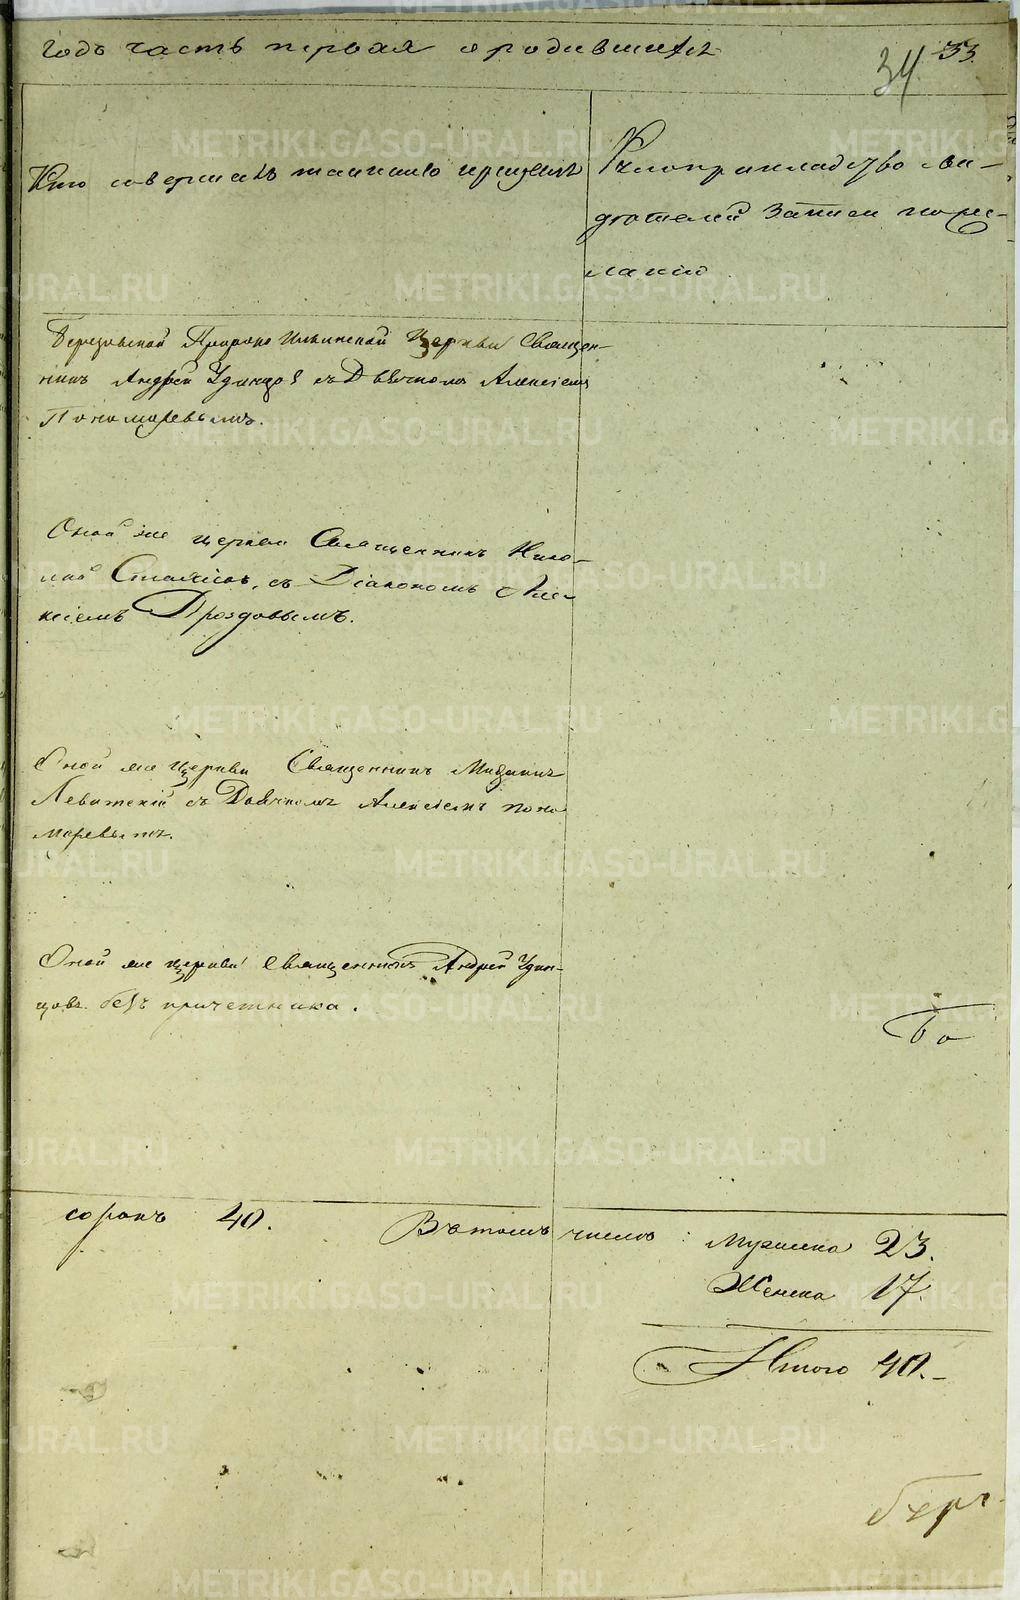 годъ часть первая о родившихся
34 33.
Кто совершалъ таинство крещенія
Рукоприкладство сви-
дѣтелей записи по же-
ланію
Березовской Пророко Ильинской церкви Священ-
никъ Андрей Удинцов съ Дьячкомъ Алексіемъ
Пономаревымъ.
Оной же церкви Священникъ Нико-
лай съ Діакономъ Але-
ксіемъ Дроздовымъ.
Оной же церкви Священникъ Михаилъ
Левитскій съ Дьячкомъ Алексіемъ Поно
маревымъ.
Оной же церкви Священникъ Андрей Удин-
цовъ безъ причетника.
Бо
сорокъ 40. Въ томъ числѣ: Мужеска 23.
Женска 17.
Итого 40.-